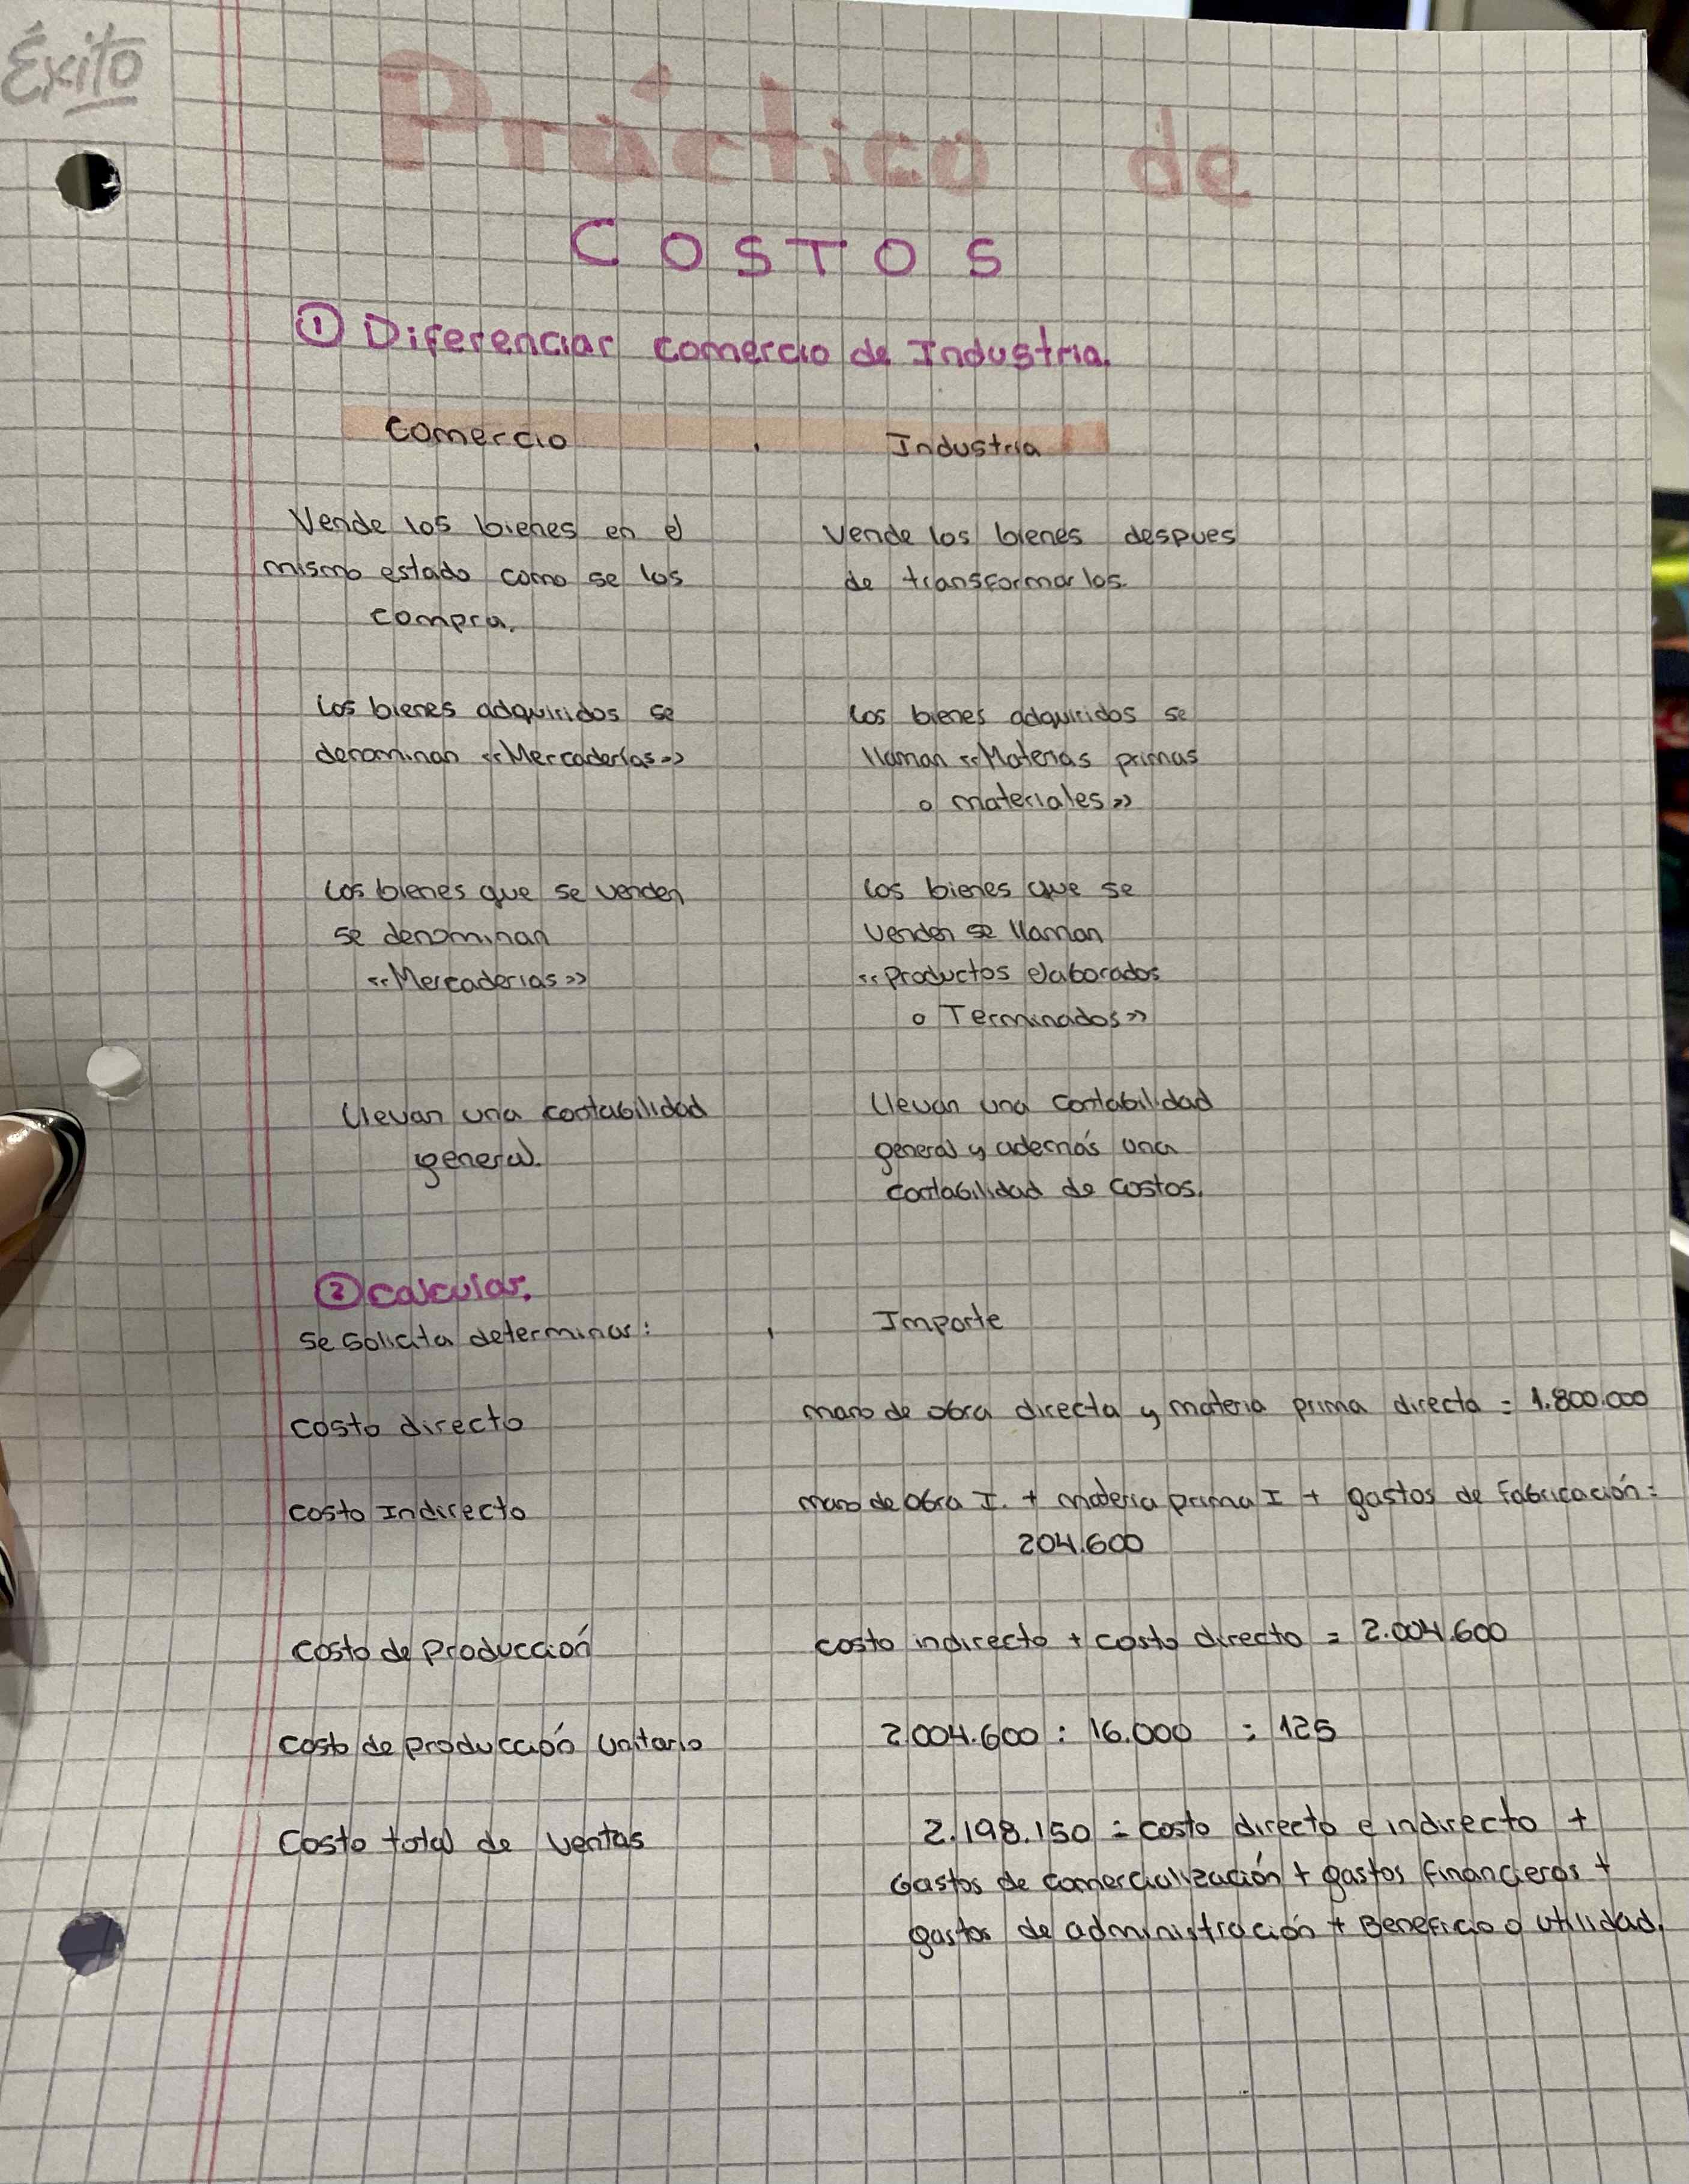 Éxito
Práctico de
COSTOS
① Diferenciar comercio de Industria.
Comercio , Industria
Vende los bienes en el
mismo estado como se los
compra.
Vende los bienes despues
de transformarlos.
Los bienes adquiridos se
denominan «Mercaderías»
Los bienes adquiridos se
llaman «Materias primas
o materiales»
Los bienes que se venden
se denominan
«Mercaderias»
Los bienes que se
venden se llaman
«Productos elaborados
o Terminados»
Llevan una contabilidad
general.
Llevan una contabilidad
general y además una
contabilidad de costos.
② calcular.
Se solicita determinar: , Importe
costo directo
mano de obra directa y materia prima directa = 1.800.000
costo Indirecto
mano de obra I. + materia prima I + gastos de fabricación =
204.600
costo de Producción
costo indirecto + costo directo = 2.004.600
costo de producción Unitario
2.004.600 : 16.000 = 125
Costo total de ventas
2.198.150 = costo directo e indirecto +
Gastos de comercialización + gastos financieros +
gastos de administración + Beneficio o utilidad.